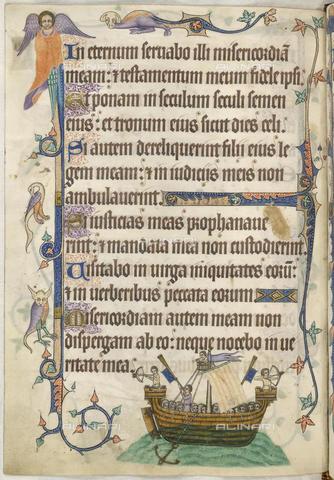 In eternum seruabo illi misericordiã
meam: ⁊ testamentum meum fidele ipsi.
Et ponam in seculum seculi semen
eius: et tronum eius sicut dies celi.
Si autem dereliquerint filii eius le
gem meam: ⁊ in iudiciis meis non
ambulauerint.
Si iusticias meas prophanaue
rint: ⁊ mandata mea non custodierint.
Uisitabo in uirga iniquitates eorũ:
⁊ in uerberibus peccata eorum
Misericordiam autem meam non
dispergam ab eo: neque nocebo in ue
ritate mea.
ALINARI
ALINARI